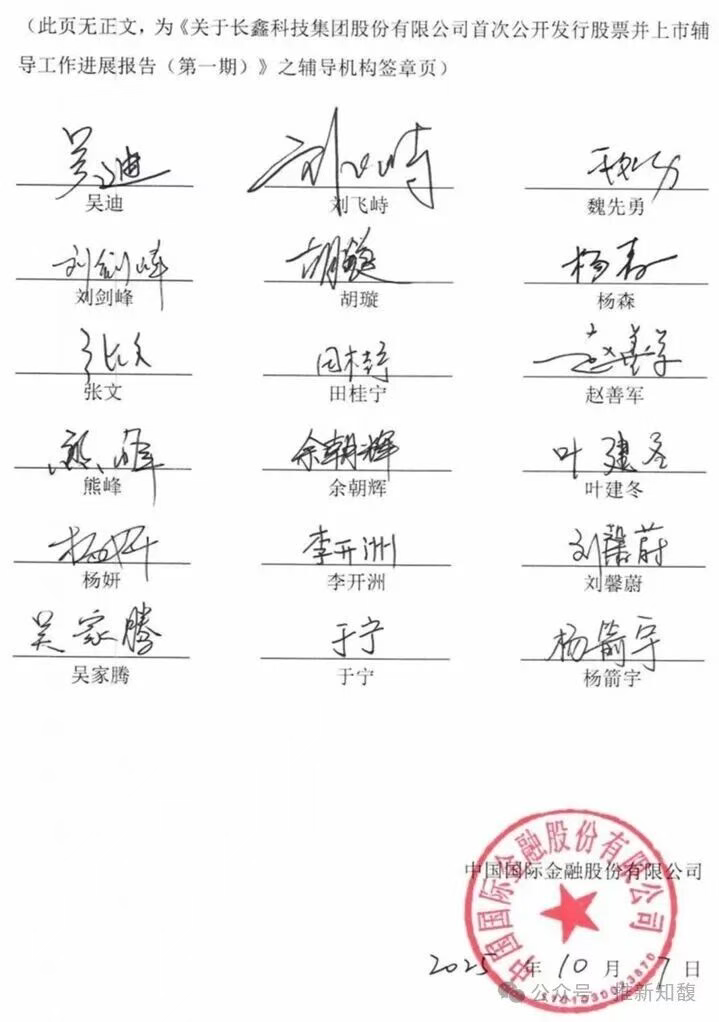 (此页无正文，为《关于长鑫科技集团股份有限公司首次公开发行股票并上市辅
导工作进展报告（第一期）》之辅导机构签章页)
吴迪 刘飞峙 魏先勇
吴迪 刘飞峙 魏先勇
刘剑峰 胡璇 杨森
刘剑峰 胡璇 杨森
张文 田桂宁 赵善军
张文 田桂宁 赵善军
熊峰 余朝辉 叶建冬
熊峰 余朝辉 叶建冬
杨妍 李开洲 刘馨蔚
杨妍 李开洲 刘馨蔚
吴家腾 于宁 杨箭宇
吴家腾 于宁 杨箭宇
中国国际金融股份有限公司
中国国际金融股份有限公司
2025年10月7日
公众号·雅新知馥